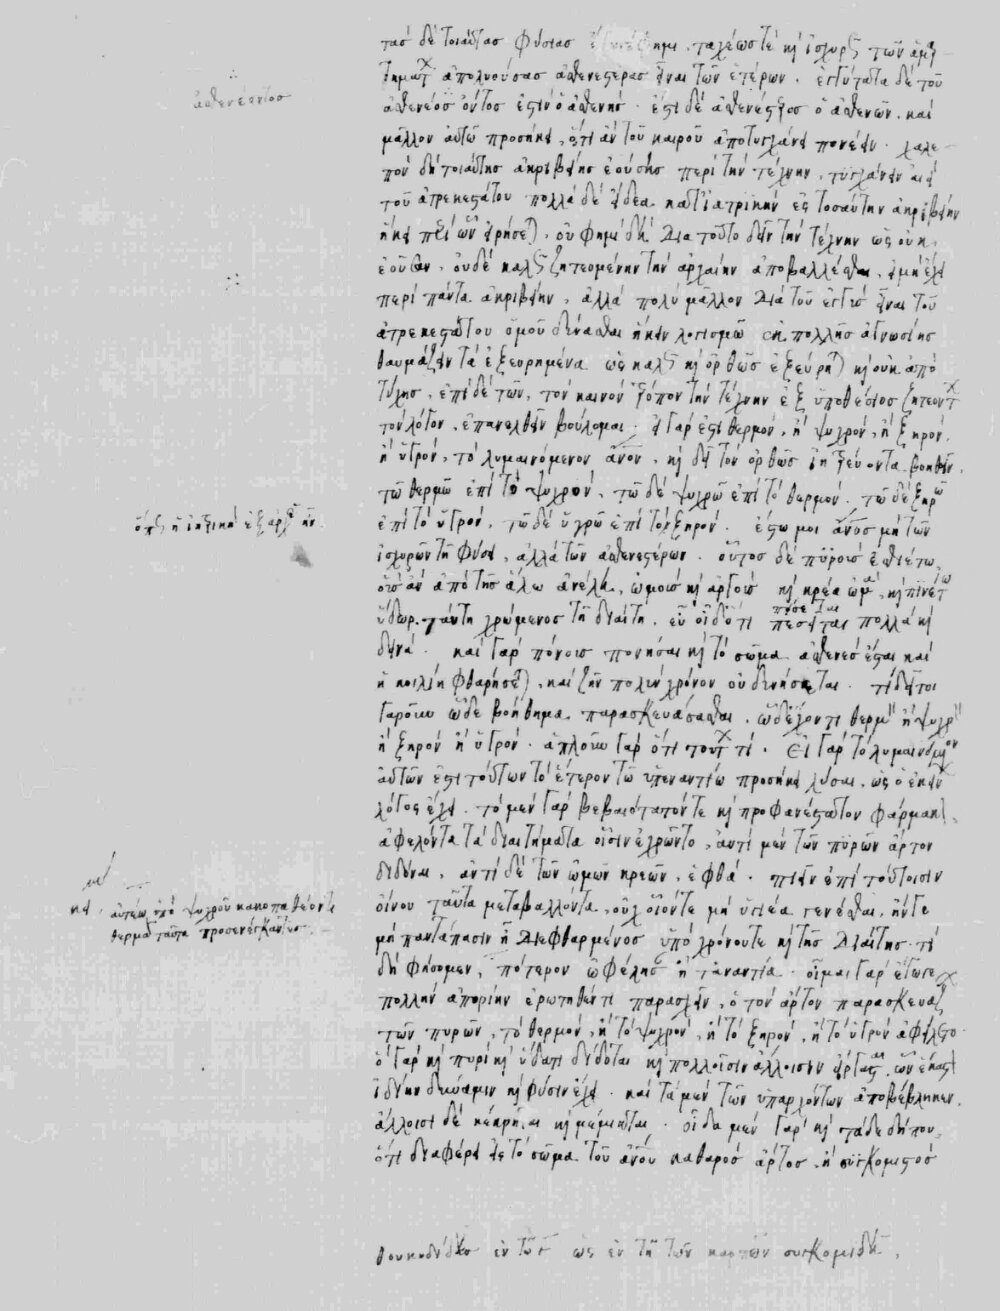 τὰς δὲ τοιαύτας φύσιας ἔγωγέ φημι, ταχέως τὲ κỳ ἰσχυρῶς τῶν ἁμαρ-
τημάτων ἀπολαυούσας ἀσθενεστέρας εἶναι τῶν ἑτέρων. ἐγγύτατα δὲ τοῦ
ἀσθενέοντος
ἀσθενέος ὄντος ἐστὶν ὁ ἀσθενής. ἔτι δὲ ἀσθενέστερος ὁ ἀσθενῶν. καὶ
μᾶλλον αὐτῶ προσήκει, ὅτι ἂν τοῦ καιροῦ ἀποτυγχάνει πονέειν. χαλε-
πὸν δὴ τοιαύτης ἀκριβείης ἐούσης περὶ τὴν τέχνην, τυγχάνειν αἰεὶ
τοῦ ἀτρεκεστάτου πολλὰ δὲ εἴδεα κατ᾽ ἰατρικὴν ἐς τοσαύτην ἀκριβείην
ἥκει περὶ ὧν εἰρήσεται, οὔ φημι δὴ διὰ τοῦτο δεῖν τὴν τέχνην ὡς οὐκ
ἐοῦσαν, οὐδὲ καλῶς ζητεομένην τὴν ἀρχαίην ἀποβαλλέσθαι, εἰ μὴ ἔχει
περὶ πάντα ἀκριβείην, ἀλλὰ πολὺ μᾶλλον διὰ τοῦ ἐγγὺς εἶναι τοῦ
ἀτρεκεστάτου ὁμοῦ δύνασθαι ἥκειν λογισμῶ ἐκ πολλῆς ἀγνωσίης
θαυμάζειν τὰ ἐξευρημένα ὡς καλῶς κỳ ὀρθῶς ἐξεύρηται κỳ οὐκ ἀπὸ
τύχης, ἐπὶ δὲ τῶν, τὸν καινὸν τρόπον τὴν τέχνην ἐξ ὑποθέσιος ζητεόντων
τὸν λόγον, ἐπανελθεῖν βούλομαι. εἰ γάρ ἐστι θερμὸν, ἢ ψυχρὸν, ἢ ξηρὸν,
ἢ ὑγρὸν, τὸ λυμαινόμενον ἄνον, κỳ δεῖ τὸν ὀρθῶς ἰητρεύοντα βοηθεῖν,
τῶ θερμῶ ἐπὶ τὸ ψυχρὸν, τῶ δὲ ψυχρῶ ἐπὶ τὸ θερμὸν, τῶ δὲ ξηρῶ
ὅπως ἡ ἰητρικὴ ἐξ ἀρχῆς ἦν.
ἐπὶ τὸ ὑγρὸν, τῶ δὲ ὑγρῶ ἐπὶ τὸ ξηρὸν. ἔστω μοι ἄνος μὴ τῶν
ἰσχυρῶν τῇ φύσει, ἀλλὰ τῶν ἀσθενεστέρων. οὗτος δὲ πυροὺς ἐσθιέτω,
οὓς ἂν ἀπὸ τῆς ἅλω ἀνέλῃ, ὠμοὺς κỳ ἀργοὺς κỳ κρέα ὠμὰ, κỳ πινέτω
ὕδωρ. ταύτῃ χρώμενος τῇ διαίτῃ, εὖ οἶδ᾽ ὅτι πείσεται πολλὰ κỳ
δεινά. καὶ γὰρ πόνοις πονήσει κỳ τὸ σῶμα ἀσθενὲς ἔσται καὶ
ἡ κοιλίη φθαρήσεται, καὶ ζῆν πολὺν χρόνον οὐ δυνήσεται. τί δεῖ τοι
γαροῦν ὧδε βοήθημα παρασκευάσασθαι, ὧδ᾽ ἔχοντι θερμὸν ἢ ψυχρὸν
ἢ ξηρὸν ἢ ὑγρὸν. ἁπλοῦν γὰρ ὅτι τουτ τι. Εἰ γὰρ τὸ λυμαινόμενον
αὐτῶν ἐστι τούτων τὸ ἕτερον τῶ ὑπεναντίω προσήκει λῦσαι, ὡς ὁ ἐκείνων
λόγος ἔχει. τὸ μὲν γὰρ βεβαιότατόν τε κỳ προφανέστατον φάρμακον,
ἀφελόντα τὰ διαιτήματα οἷσιν ἐχρῶντο, ἀντὶ μὲν τῶν πυρῶν ἄρτον
διδόναι, ἀντὶ δὲ τῶν ὠμῶν κρεῶν, ἑφθά. πιεῖν ἐπὶ τούτοισιν
κỳ. αὐτέω ὑπὸ ψυχροῦ κακοπαθέοντι
θερμὰ ταῦτα προσενέγκαντες.
οἴνου ταῦτα μεταβαλλόντα, οὐχ οἷόντε μὴ ὑγιέα γενέσθαι, ἤν γε
μὴ παντάπασιν ᾖ διεφθαρμένος ὑπὸ χρόνου τε κỳ τῆς διαίτης. τί
δὴ φήσομεν, πότερον ὠφέλησε ἢ τἀναντία. οἶμαι γὰρ ἔγωγε
πολλὴν ἀπορίην ἐρωτηθέντι παρασχεῖν, ὁ τὸν ἄρτον παρασκευάζων
τῶν πυρῶν, τὸ θερμὸν, ἢ τὸ ψυχρὸν, ἢ τὸ ξηρὸν, ἢ τὸ ὑγρὸν ἀφείλετο.
ὁ γὰρ κỳ πυρὶ κỳ ὕδατι δίδοται κỳ πολλοῖσιν ἄλλοισιν εἴργασται, ὧν ἕκαστον
ἰδίην δύναμιν κỳ φύσιν ἔχει. καὶ τὰ μὲν τῶν ὑπαρχόντων ἀποβέβληκεν,
ἄλλοισι δὲ κέκρηται κỳ μέμικται. οἶδα μὲν γὰρ κỳ τάδε δήπου,
ὅτι διαφέρει ἐς τὸ σῶμα τοῦ ἄνου καθαρὸς ἄρτος, ἢ συγκομιστὸς
θουκυδίδης ἐν τῶ ς ὡς ἐν τῇ τῶν καρπῶν συγκομιδῇ.